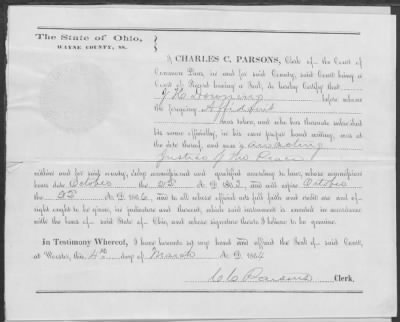 The State of Ohio,
WAYNE COUNTY, SS.
I CHARLES C. PARSONS, Clerk of the Court of
Common Pleas, in and for said County, said Court being a
Court of Record having a Seal, do hereby Certify that
J K Downing before whom
the foregoing Affidavit
was taken, and who has thereunto subscribed
his name officially, in his own proper hand writing, was at
the date thereof, and now is an acting
Justice of the Peace
within and for said county, duly commissioned and qualified according to law, whose commission
bears date October the A. D. 1863, and will expire October
the A. D. 1866, and to all whose official acts full faith and credit are and of
right ought to be given, in judicature and thereout, which said instrument is executed in accordance
with the laws of said State of Ohio, and whose signature thereto I believe to be genuine.
In Testimony Whereof, I have hereunto set my hand and affixed the Seal of said Court,
at Wooster, this 4th day of March A. D. 1864
C C Parsons Clerk.